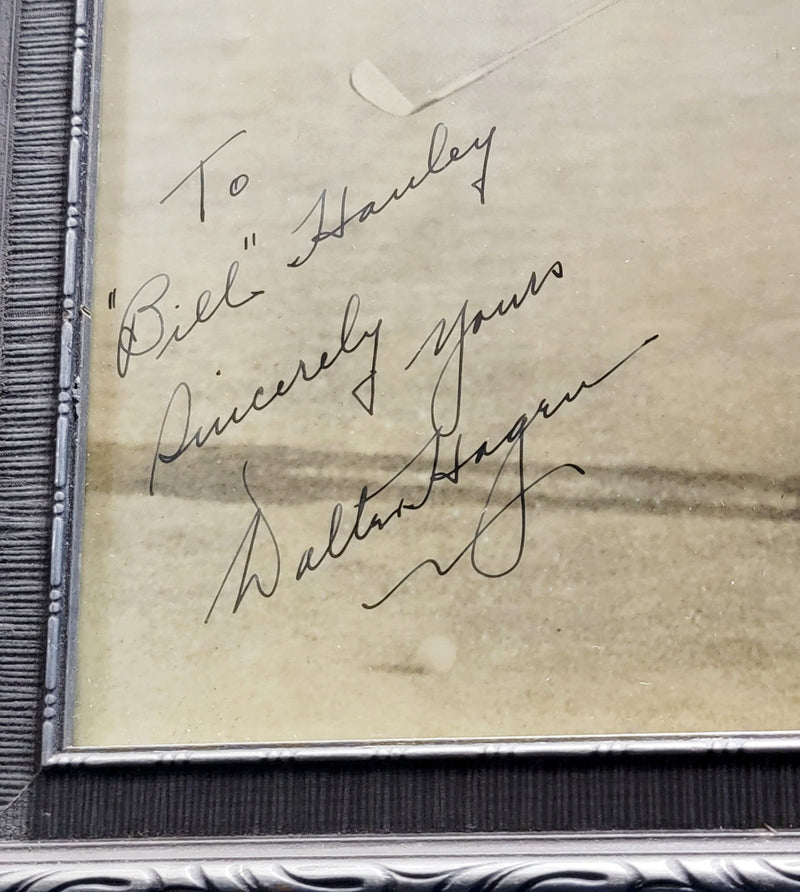 To
"Bill" Hanley
Sincerely Yours
Walter Hagen